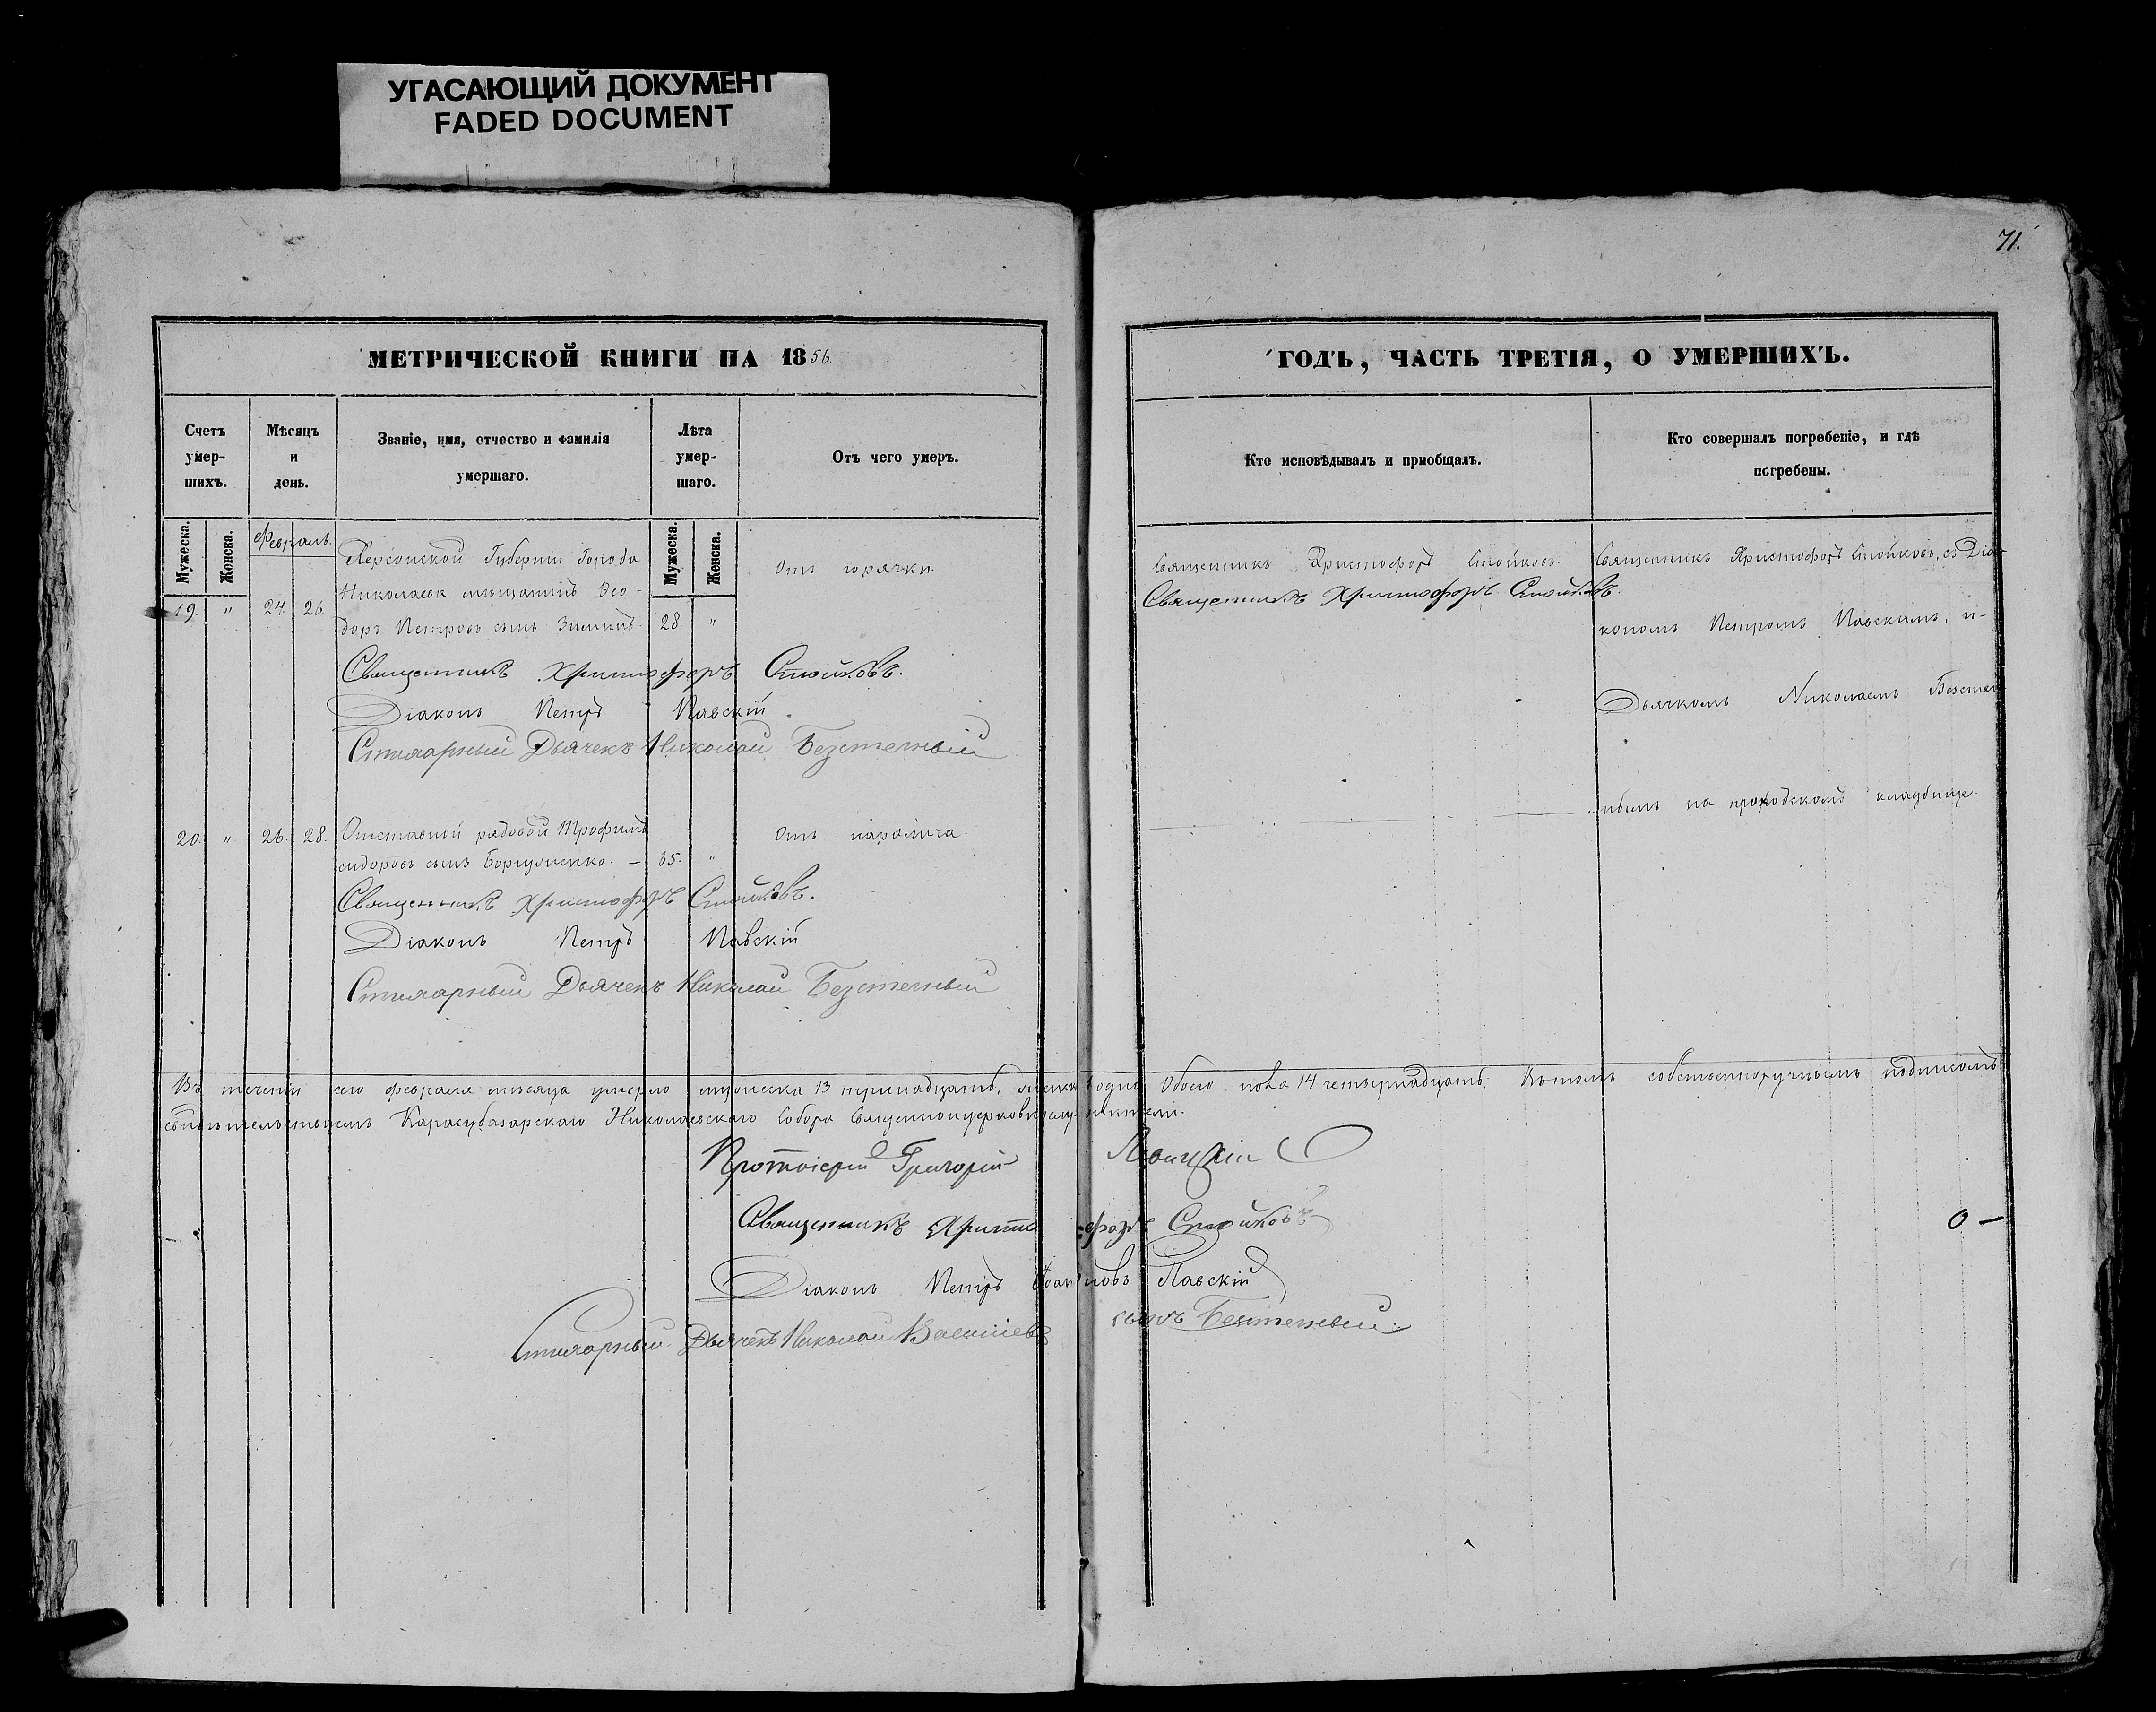 УГАСАЮЩИЙ ДОКУМЕНТ
FADED DOCUMENT
71.
МЕТРИЧЕСКОЙ КНИГИ НА 1856
ГОДЪ, ЧАСТЬ ТРЕТІЯ, О УМЕРШИХЪ.
Счетъ умер-шихъ.
Мѣсяцъ и день.
Званіе, имя, отчество и фамилія умершаго.
Лѣта умер-шаго.
Отъ чего умеръ.
Кто исповѣдывалъ и пріобщалъ.
Кто совершалъ погребеніе, и гдѣ погребены.
Мужеска.
Женска.
Февраль.
Мужеска.
Женска.
Херсонской Губерніи Города
Николаева мѣщанинъ Ѳео-
19. " 24. 26. доръ Петровъ сынъ 28 "
Отъ горячки.
Священникъ Христофоръ Стойковъ.
Священникъ Христофоръ Стойковъ.
Священникъ Христофоръ Стойковъ, съ Діа-
кономъ Петромъ Павскимъ, и-
Дьячкомъ Николаемъ Безстен
нымъ на городскомъ кладбище.
Священникъ Христофоръ Стойковъ.
Діаконъ Петръ Павскій
Стихарный Дьячекъ Николай Безстенный
20. " 26. 28. Отставной рядовой Трофимъ
Сидоровъ сынъ 35. "
Отъ паралича.
Священникъ Христофоръ Стойковъ.
Діаконъ Петръ Павскій
Стихарный Дьячекъ Николай Безстенный
Въ теченіи сего февраля мѣсяца умерло мужеска 13 тринадцать, женска одна Обоего пола 14 четырнадцать. Въ томъ собственноручнымъ подписомъ
свидѣтельствуемъ Карасубазарскаго Николаевскаго Собора Священноцерковнослужители.
Протоіерей Григорій
Священникъ Христофоръ Стойковъ
Діаконъ Петръ Павскій
Стихарный Дьячекъ Николай Василіевъ сынъ Безстенный
0 —